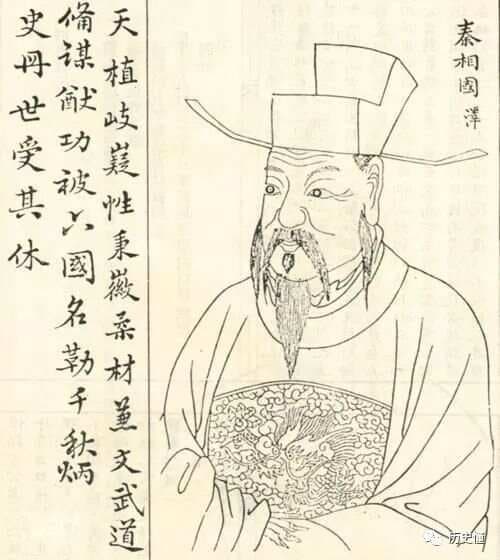 秦相國澤
天植岐嶷性秉徽柔材兼文武道
備謀猷功被六國名勒千秋炳
史册世受其休
历史